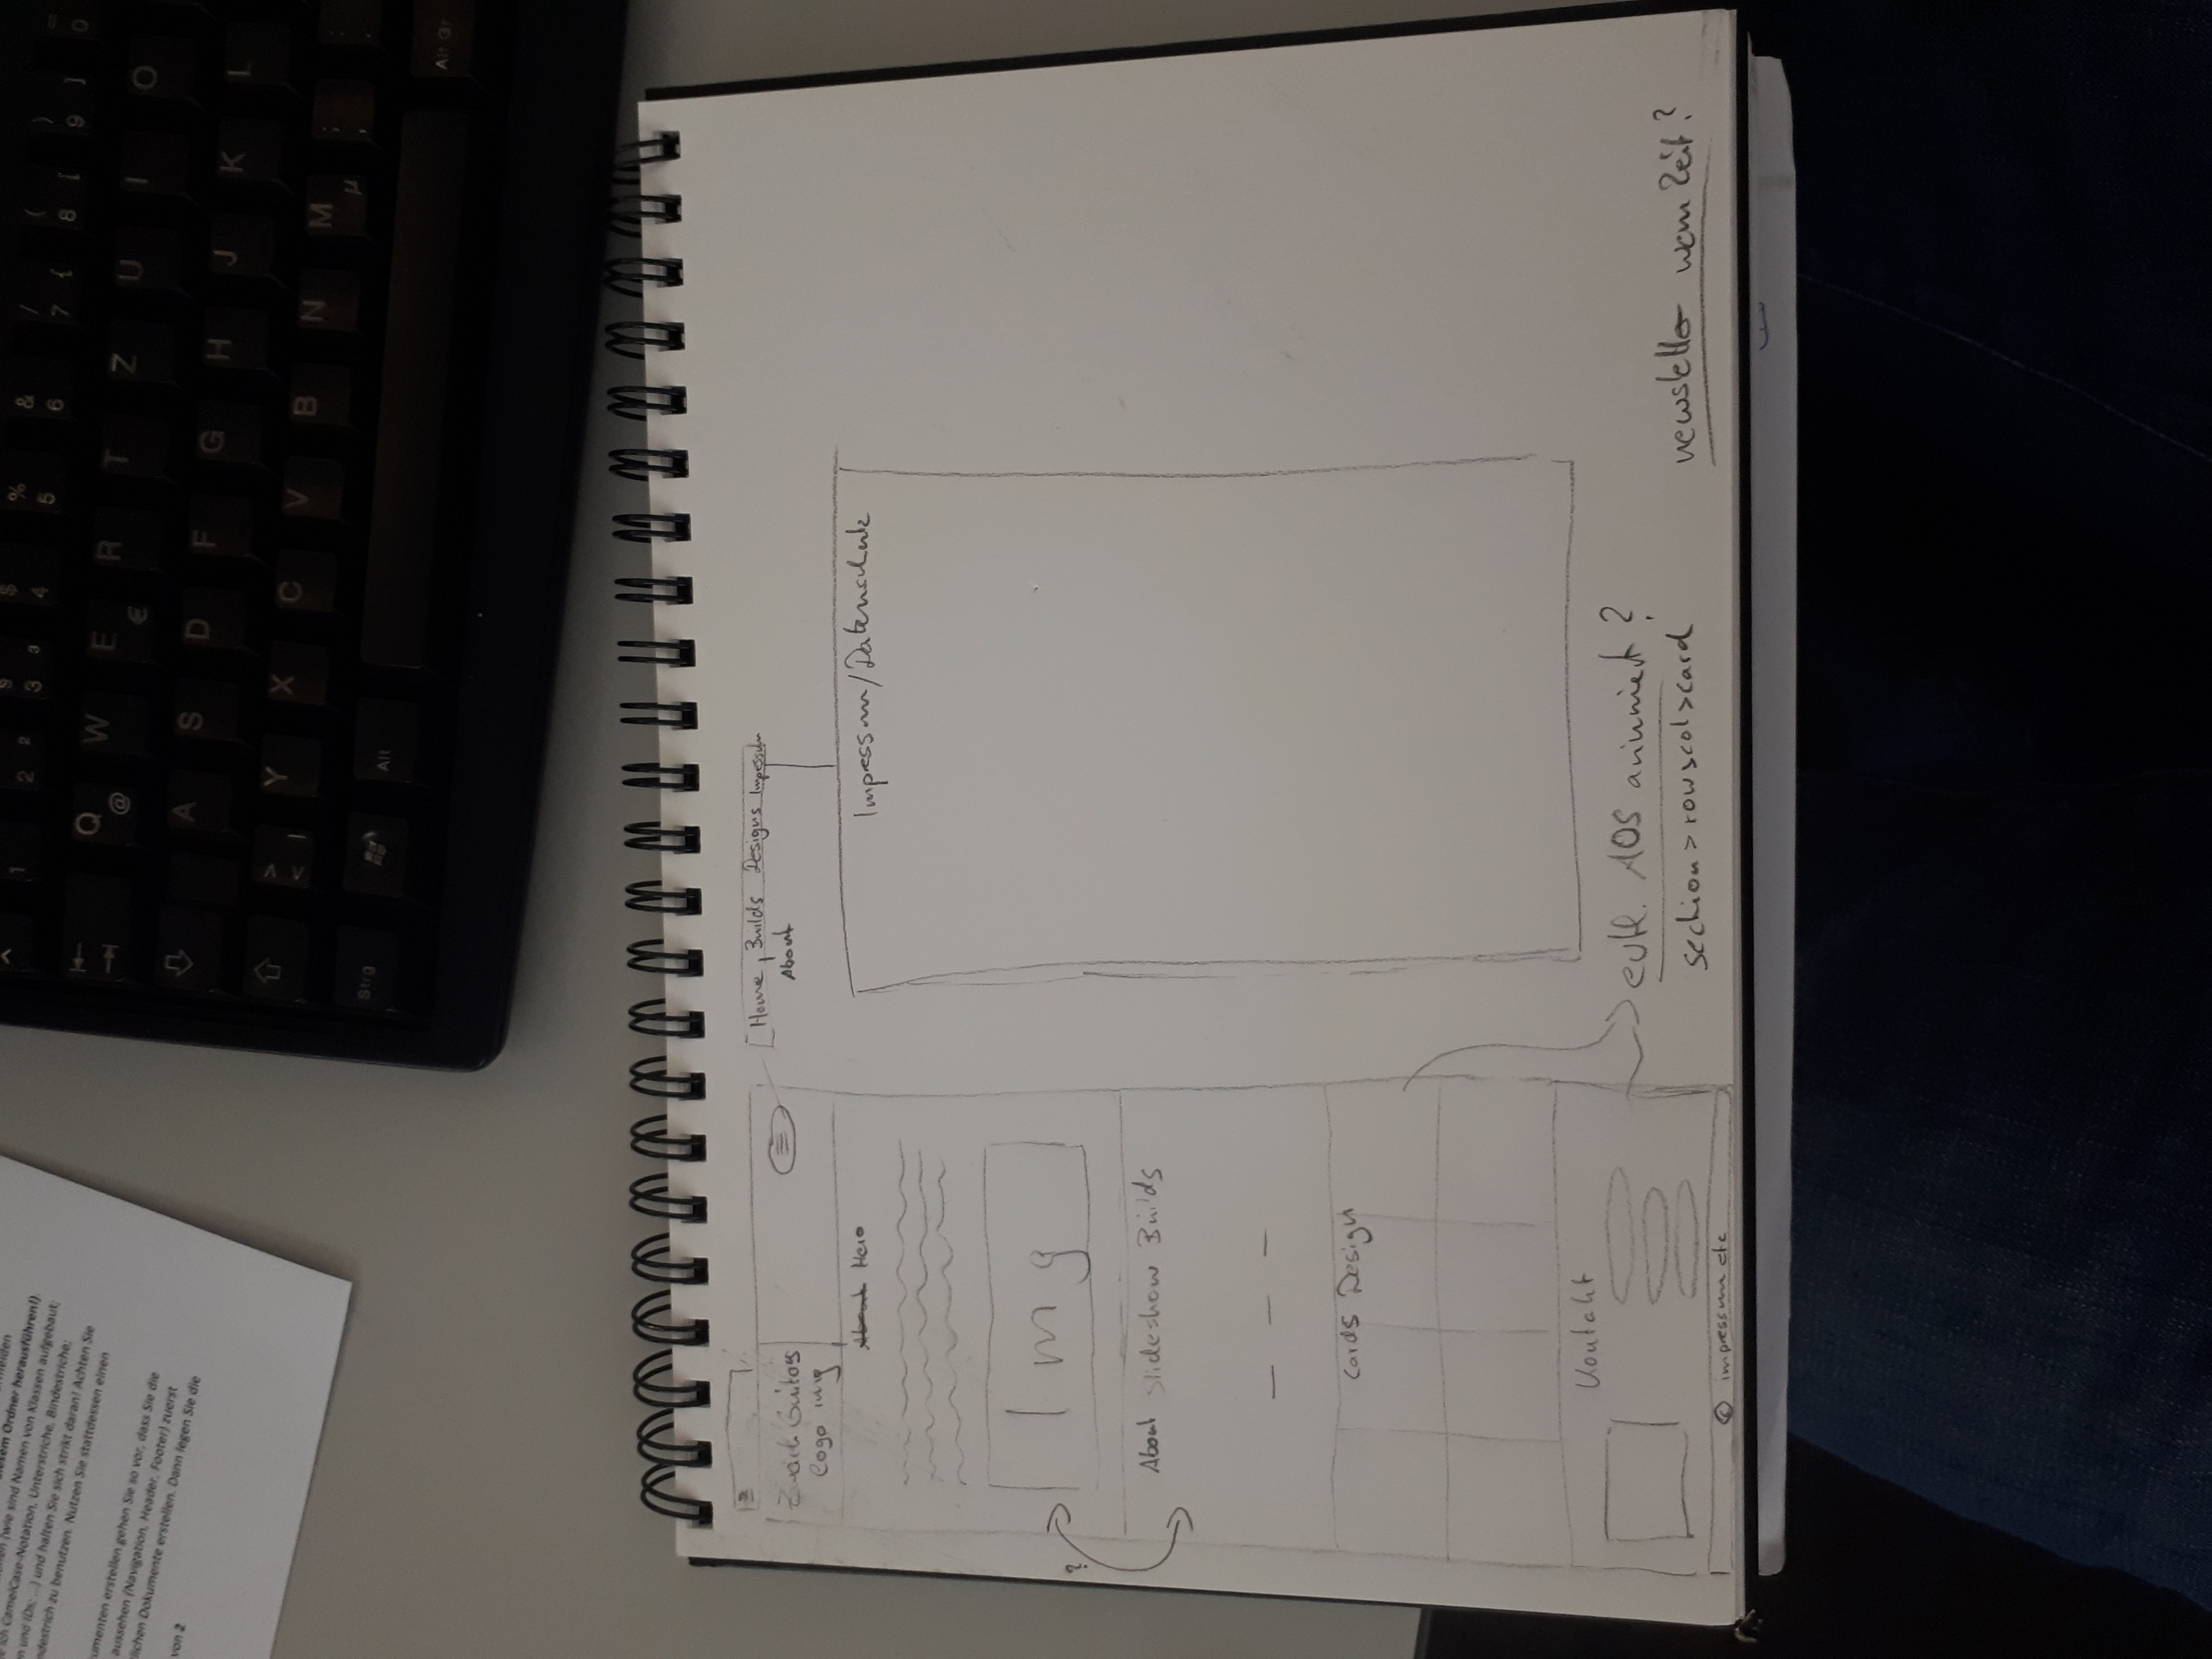 esem Ordner herausführen!)
(wie sind Namen von Klassen aufgebaut;
ich CamelCase-Notation, Unterstriche, Bindestriche;
n und IDs; ...) und halten Sie sich strikt daran! Achten Sie
ndestrich zu benutzen. Nutzen Sie stattdessen einen
umenten erstellen gehen Sie so vor, dass Sie die
aussehen (Navigation, Header, Footer) zuerst
lichen Dokumente erstellen. Dann legen Sie die
von 2
1 2 ² 3 ³ $ 4 % 5 & 6 / 7 { ( 8 [ ) 9 ] = 0
Q @ W E € R T Z U I O
A S D F G H J K L
> < | Y X C V B N M µ ; ,
Strg Alt Alt Gr
Guitars
Logo img
Home, Builds Designs Impressum
About
About Hero
Impressum/Datenschutz
Img
?
About Slideshow Builds
Cards Design
Kontakt
evtl. AOS animiert?
section>row>col>card
newsletter wenn Zeit?
© impressum etc